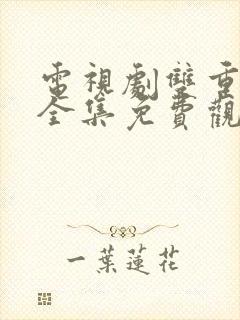 電視劇雙重
全集免費觀
一葉蓮花